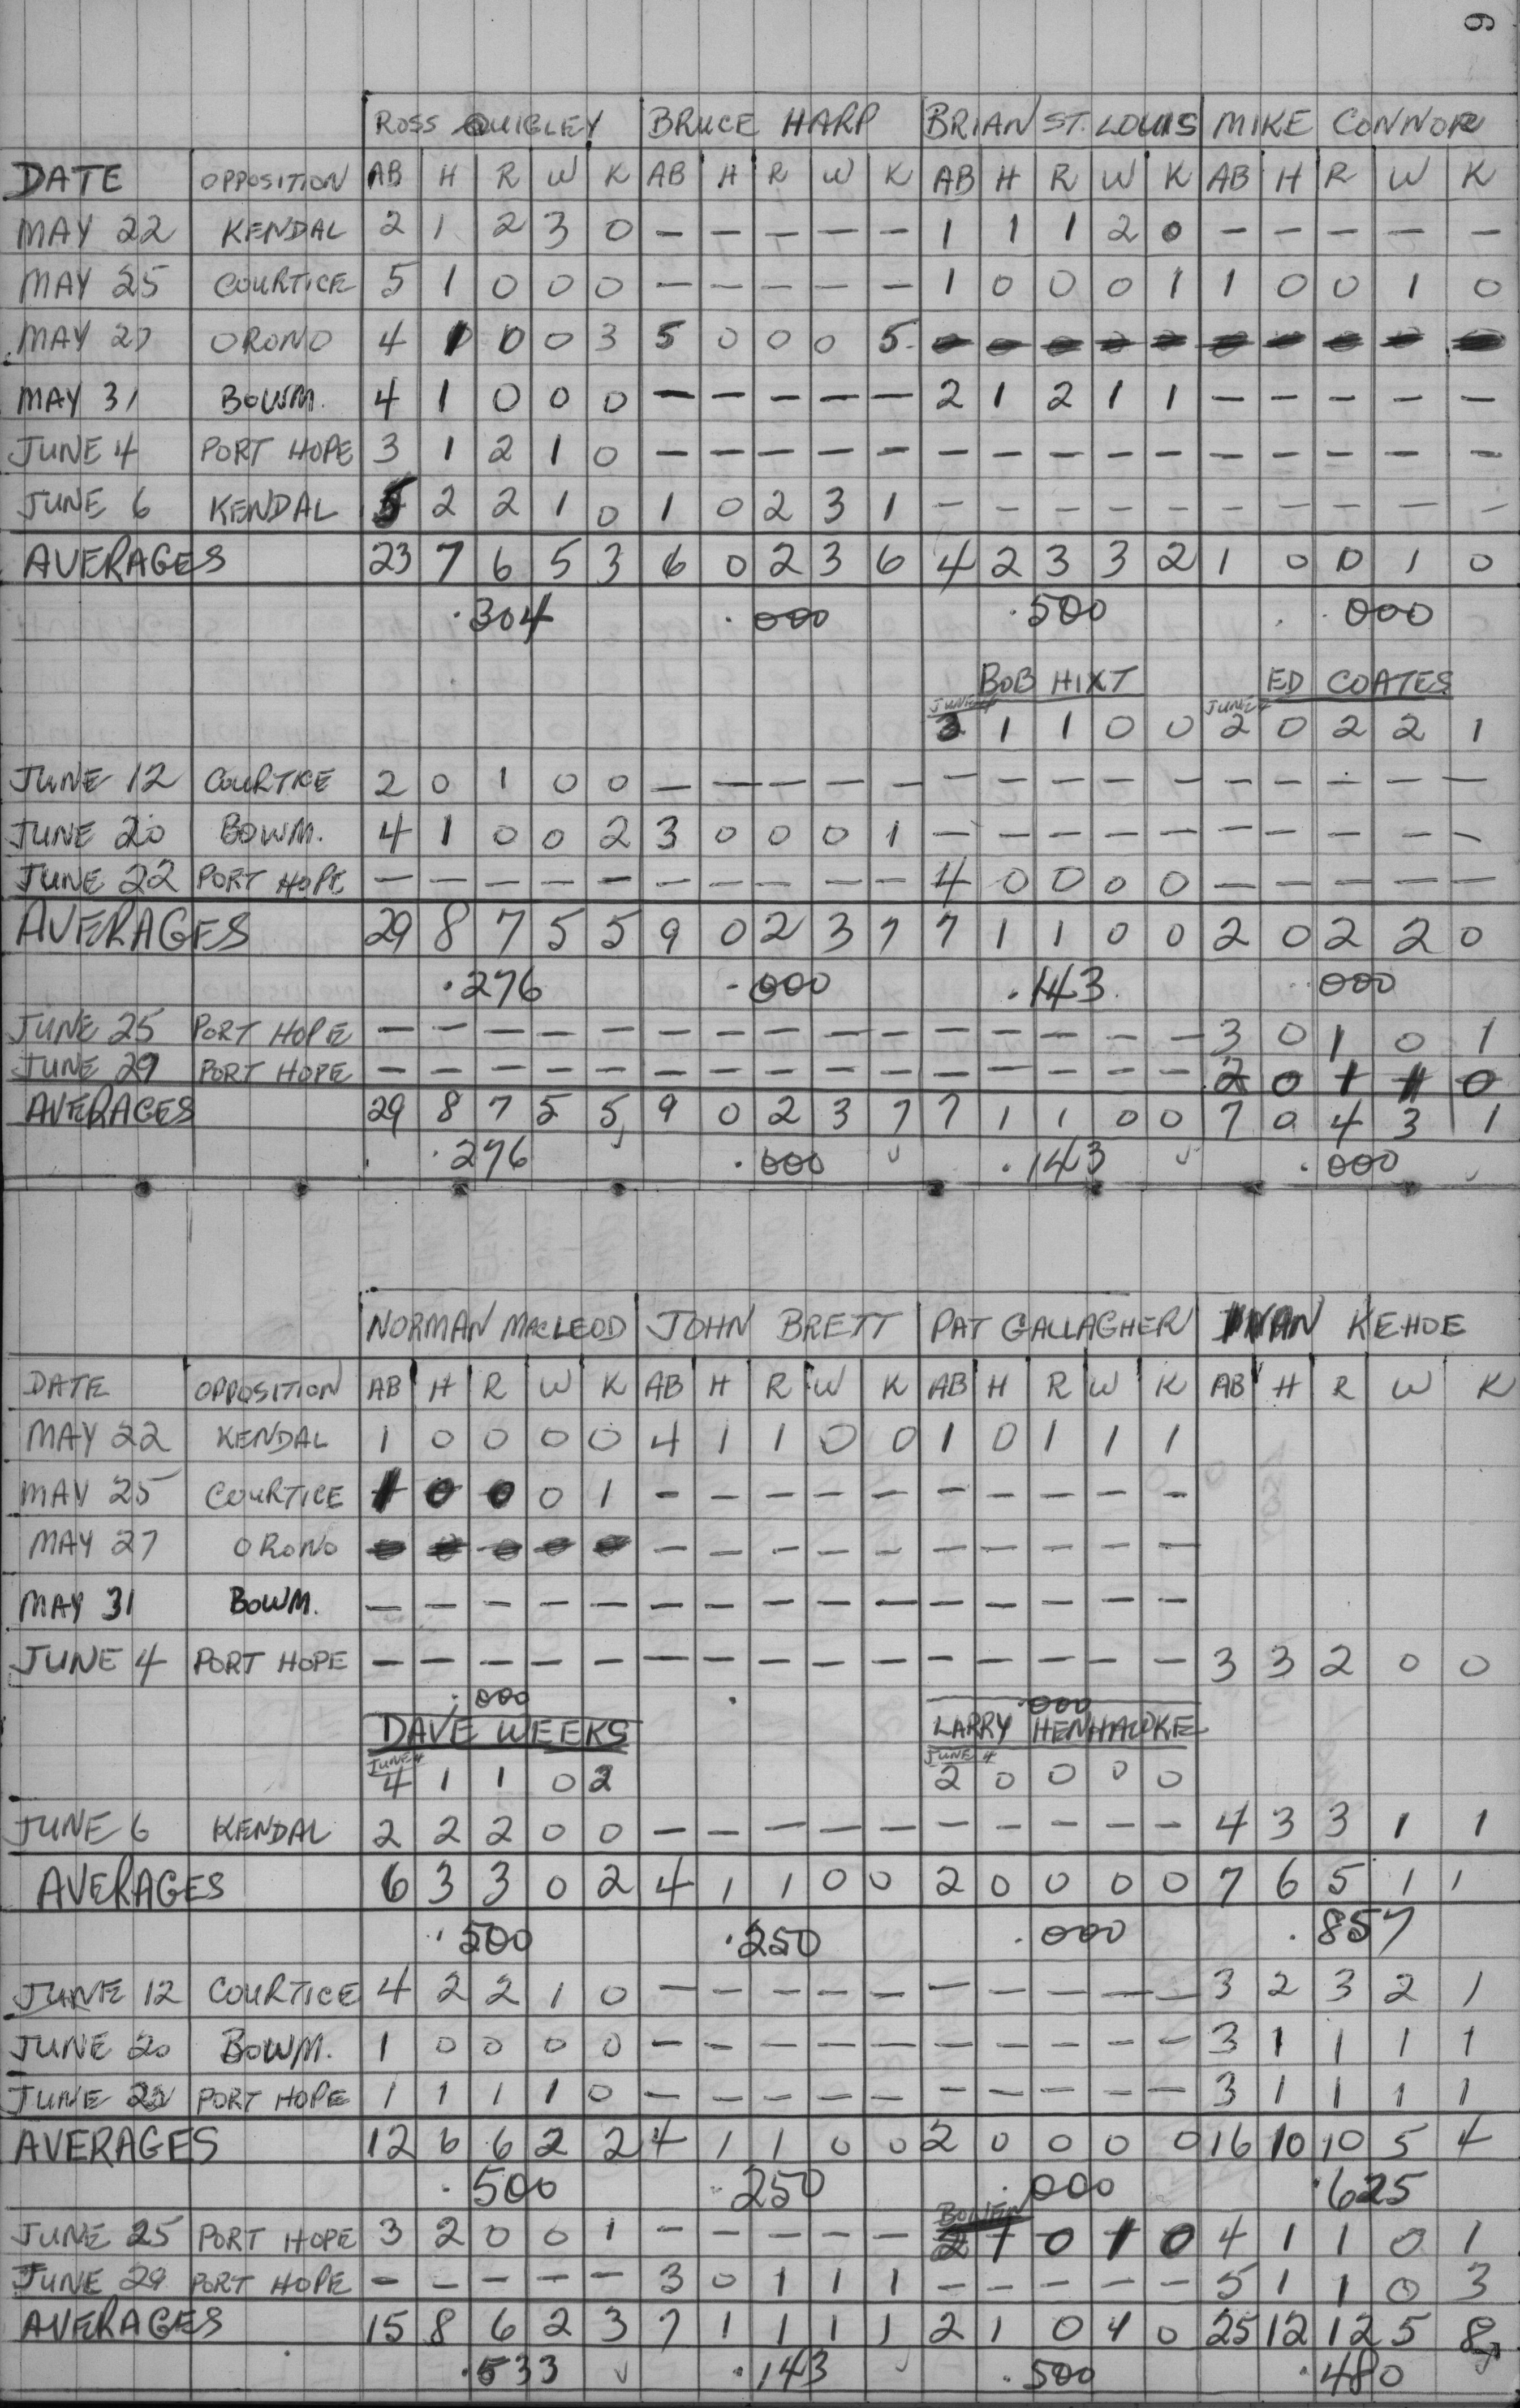 9
ROSS QUIGLEY BRUCE HARP BRIAN ST. LOUIS MIKE CONNOR
DATE OPPOSITION AB H R W K AB H R W K AB H R W K AB H R W K
MAY 22 KENDAL 2 1 2 3 0 - - - - - 1 1 1 2 0 - - - - -
MAY 25 COURTICE 5 1 0 0 0 - - - - - 1 0 0 0 1 1 0 0 1 0
MAY 27 ORONO 4 1 0 0 3 5 0 0 0 5 - - - - - - - - - -
MAY 31 BOWM. 4 1 0 0 0 - - - - - 2 1 2 1 1 - - - - -
JUNE 4 PORT HOPE 3 1 2 1 0 - - - - - - - - - - - - - - -
JUNE 6 KENDAL 5 2 2 1 0 1 0 2 3 1 - - - - - - - - - -
AVERAGES 23 7 6 5 3 6 0 2 3 6 4 2 3 3 2 1 0 0 1 0
.304 .000 .500 .000
BOB HIXT ED COATES
JUNE 4 JUNE 4
3 1 1 0 0 2 0 2 2 1
JUNE 12 COURTICE 2 0 1 0 0 - - - - - - - - - - - - - - -
JUNE 20 BOWM. 4 1 0 0 2 3 0 0 0 1 - - - - - - - - - -
JUNE 22 PORT HOPE - - - - - - - - - - 4 0 0 0 0 - - - - -
AVERAGES 29 8 7 5 5 9 0 2 3 7 7 1 1 0 0 2 0 2 2 0
.276 .000 .143 .000
JUNE 25 PORT HOPE - - - - - - - - - - - - - - - 3 0 1 0 1
JUNE 29 PORT HOPE - - - - - - - - - - - - - - - 2 0 1 1 0
AVERAGES 29 8 7 5 5 9 0 2 3 7 7 1 1 0 0 7 0 4 3 1
.276 .000 .143 .000
NORMAN MACLEOD JOHN BRETT PAT GALLAGHER IVAN KEHOE
DATE OPPOSITION AB H R W K AB H R W K AB H R W K AB H R W K
MAY 22 KENDAL 1 0 0 0 0 4 1 1 0 0 1 0 1 1 1
MAY 25 COURTICE 1 0 0 0 1 - - - - - - - - - -
MAY 27 ORONO - - - - - - - - - - - - - - -
MAY 31 BOWM. - - - - - - - - - - - - - - -
JUNE 4 PORT HOPE - - - - - - - - - - - - - - - 3 3 2 0 0
.000 .000
DAVE WEEKS LARRY HENHAWKE
JUNE 4 JUNE 4
4 1 1 0 2 2 0 0 0 0
JUNE 6 KENDAL 2 2 2 0 0 - - - - - - - - - - 4 3 3 1 1
AVERAGES 6 3 3 0 2 4 1 1 0 0 2 0 0 0 0 7 6 5 1 1
.500 .250 .000 .857
JUNE 12 COURTICE 4 2 2 1 0 - - - - - - - - - - 3 2 3 2 1
JUNE 20 BOWM. 1 0 0 0 0 - - - - - - - - - - 3 1 1 1 1
JUNE 22 PORT HOPE 1 1 1 1 0 - - - - - - - - - - 3 1 1 1 1
AVERAGES 12 6 6 2 2 4 1 1 0 0 2 0 0 0 0 16 10 10 5 4
.500 .250 .000 .625
BOWEN
JUNE 25 PORT HOPE 3 2 0 0 1 - - - - - 2 1 0 1 0 4 1 1 0 1
JUNE 29 PORT HOPE - - - - - 3 0 1 1 1 - - - - - 5 1 1 0 3
AVERAGES 15 8 6 2 3 7 1 1 1 1 2 1 0 1 0 25 12 12 5 8
.533 .143 .500 .480